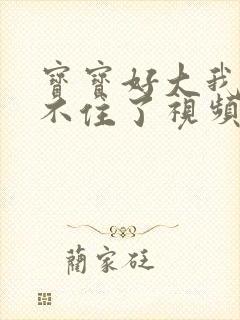 寶寶好大我
不住了視頻
藺家廷